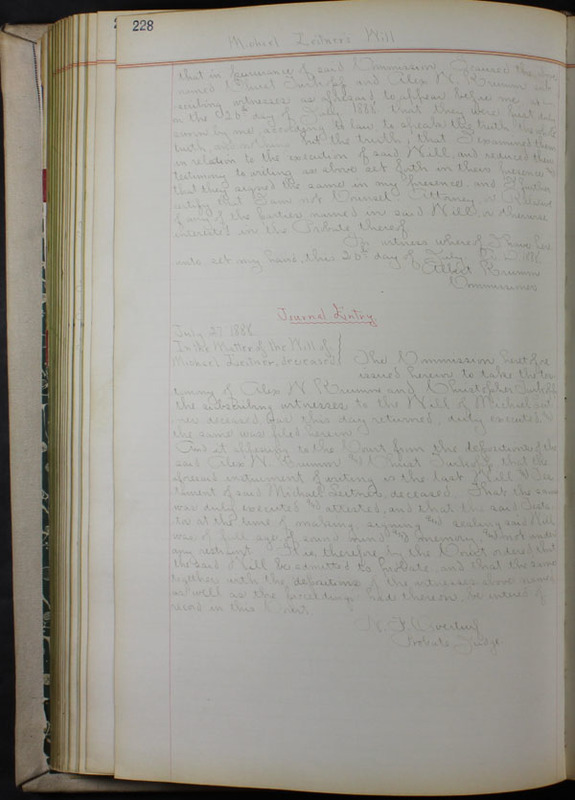 228
Michael Leitner's Will
that in pursuance of said Commission I caused the above
named Christ and Alex N. Krumm sub
scribing witnesses as aforesaid to appear before me at
on the 26th day of July 1886 that they were first duly
sworn by me, according to law to speak the truth the whole
truth, and nothing but the truth, that I examined them
in relation to the execution of said Will, and reduced their
testimony to writing as above set forth in their presence &
that they signed the same in my presence and I further
certify that I am not Counsel Attorney or Relative
of any of the parties named in said Will, or otherwise
interested in the Probate thereof
In witness whereof I have here
unto set my hand, this 26th day of July A.D. 1886
Albert Krumm
Commissioner
Journal Entry
July 27 1886
In the Matter of the Will of
Michael Leitner, deceased } The Commission heretofore
issued herein to take the tes
timony of Alex N Krumm and Christopher
the subscribing witnesses to the Will of Michael Leit
ner deceased was this day returned, duly executed &
the same was filed herein
And it appearing to the Court from the depositions of the
said Alex N. Krumm & Christ that the
aforesaid instrument of writing is the Last Will & Tes
tament of said Michael Leitner, deceased. That the same
was duly executed and attested, and that the said Testa
tor at the time of making, signing and sealing said Will
was of full age, of sound mind and memory, & not under
any restraint. It is therefore, by the Court ordered that
the said Will be admitted to probate, and that the same
together with the depositions of the witnesses above named
as well as the proceedings had thereon, be entered of
record in this Court.
Probate Judge